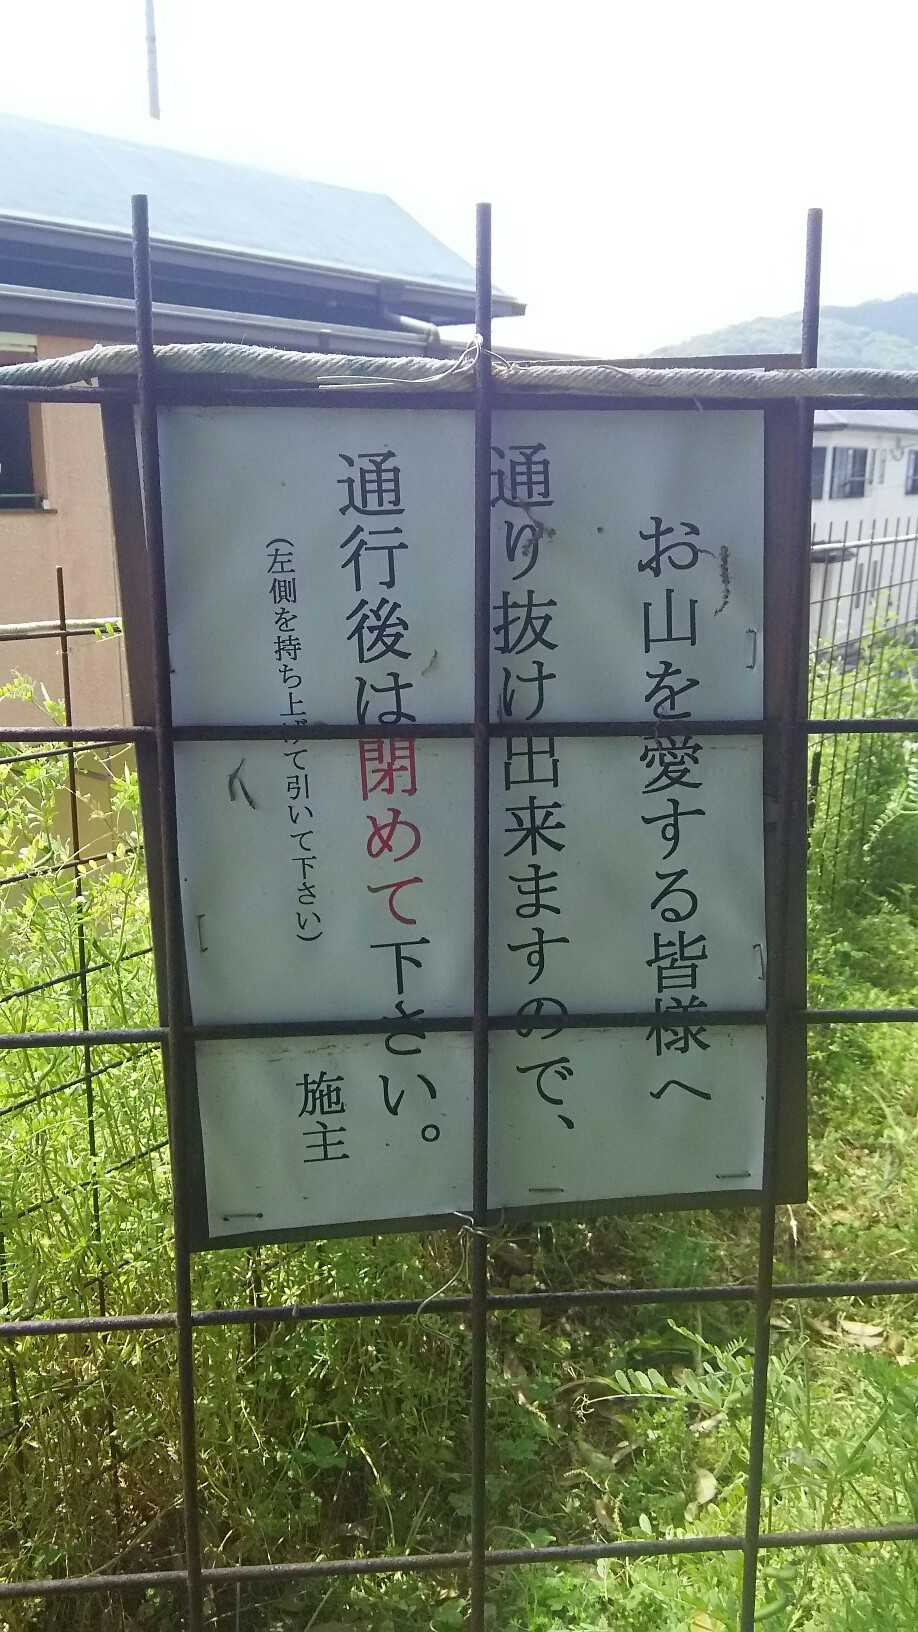 お山を愛する皆様へ
通り抜け出来ますので、
通行後は閉めて下さい。
（左側を持ち上げて引いて下さい）
施主